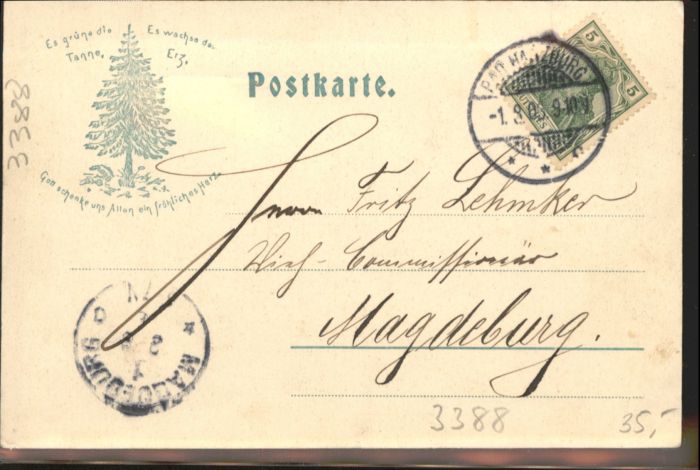 Es grüne die Tanne,
Es wachse das Erz,
Gott schenke uns Allen ein fröhliches Herz.
3388
Postkarte.
BAD HARZBURG
9-10 V
5
5
Herrn Fritz Lehmker
Vieh-Commissionär
Magdeburg.
MAGDEBURG
3388
35,-